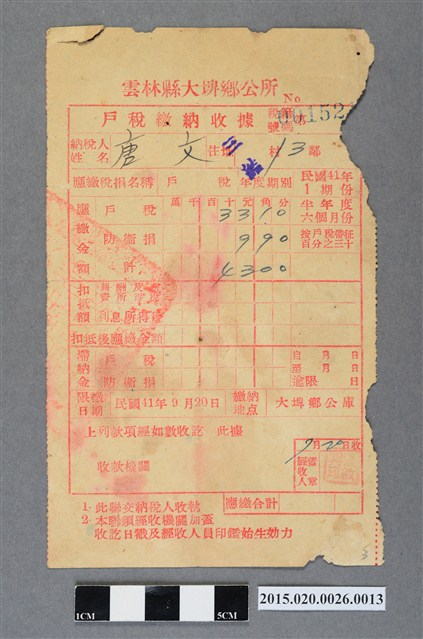 雲林縣大埤鄉公所
No
戶稅繳納收據
00152
納稅人姓名 唐文 住址 三結村 13 鄰
應繳稅捐名稱 戶稅 年度期別 民國41年1期份
萬千百十元角分 半年度六個月份
應繳金額 戶稅 3310
防衛捐 990 按戶稅帶征百分之三十
計 4300
扣抵額
利息所得稅
扣抵後應繳金額
滯納金 戶稅 自 月 日
至 月 日
防衛捐 逾限 日
限繳日期 民國41年9月20日 繳納地点 大埤鄉公庫
上列款項經如數收訖 此據
9月20日收
收款機關
經收人 蓋章
應繳合計
1· 此聯交納稅人收執
2· 本聯須經收機關加蓋
收訖日戳及經收人員印鑑始生効力
3
1CM
5CM
2015.020.0026.0013